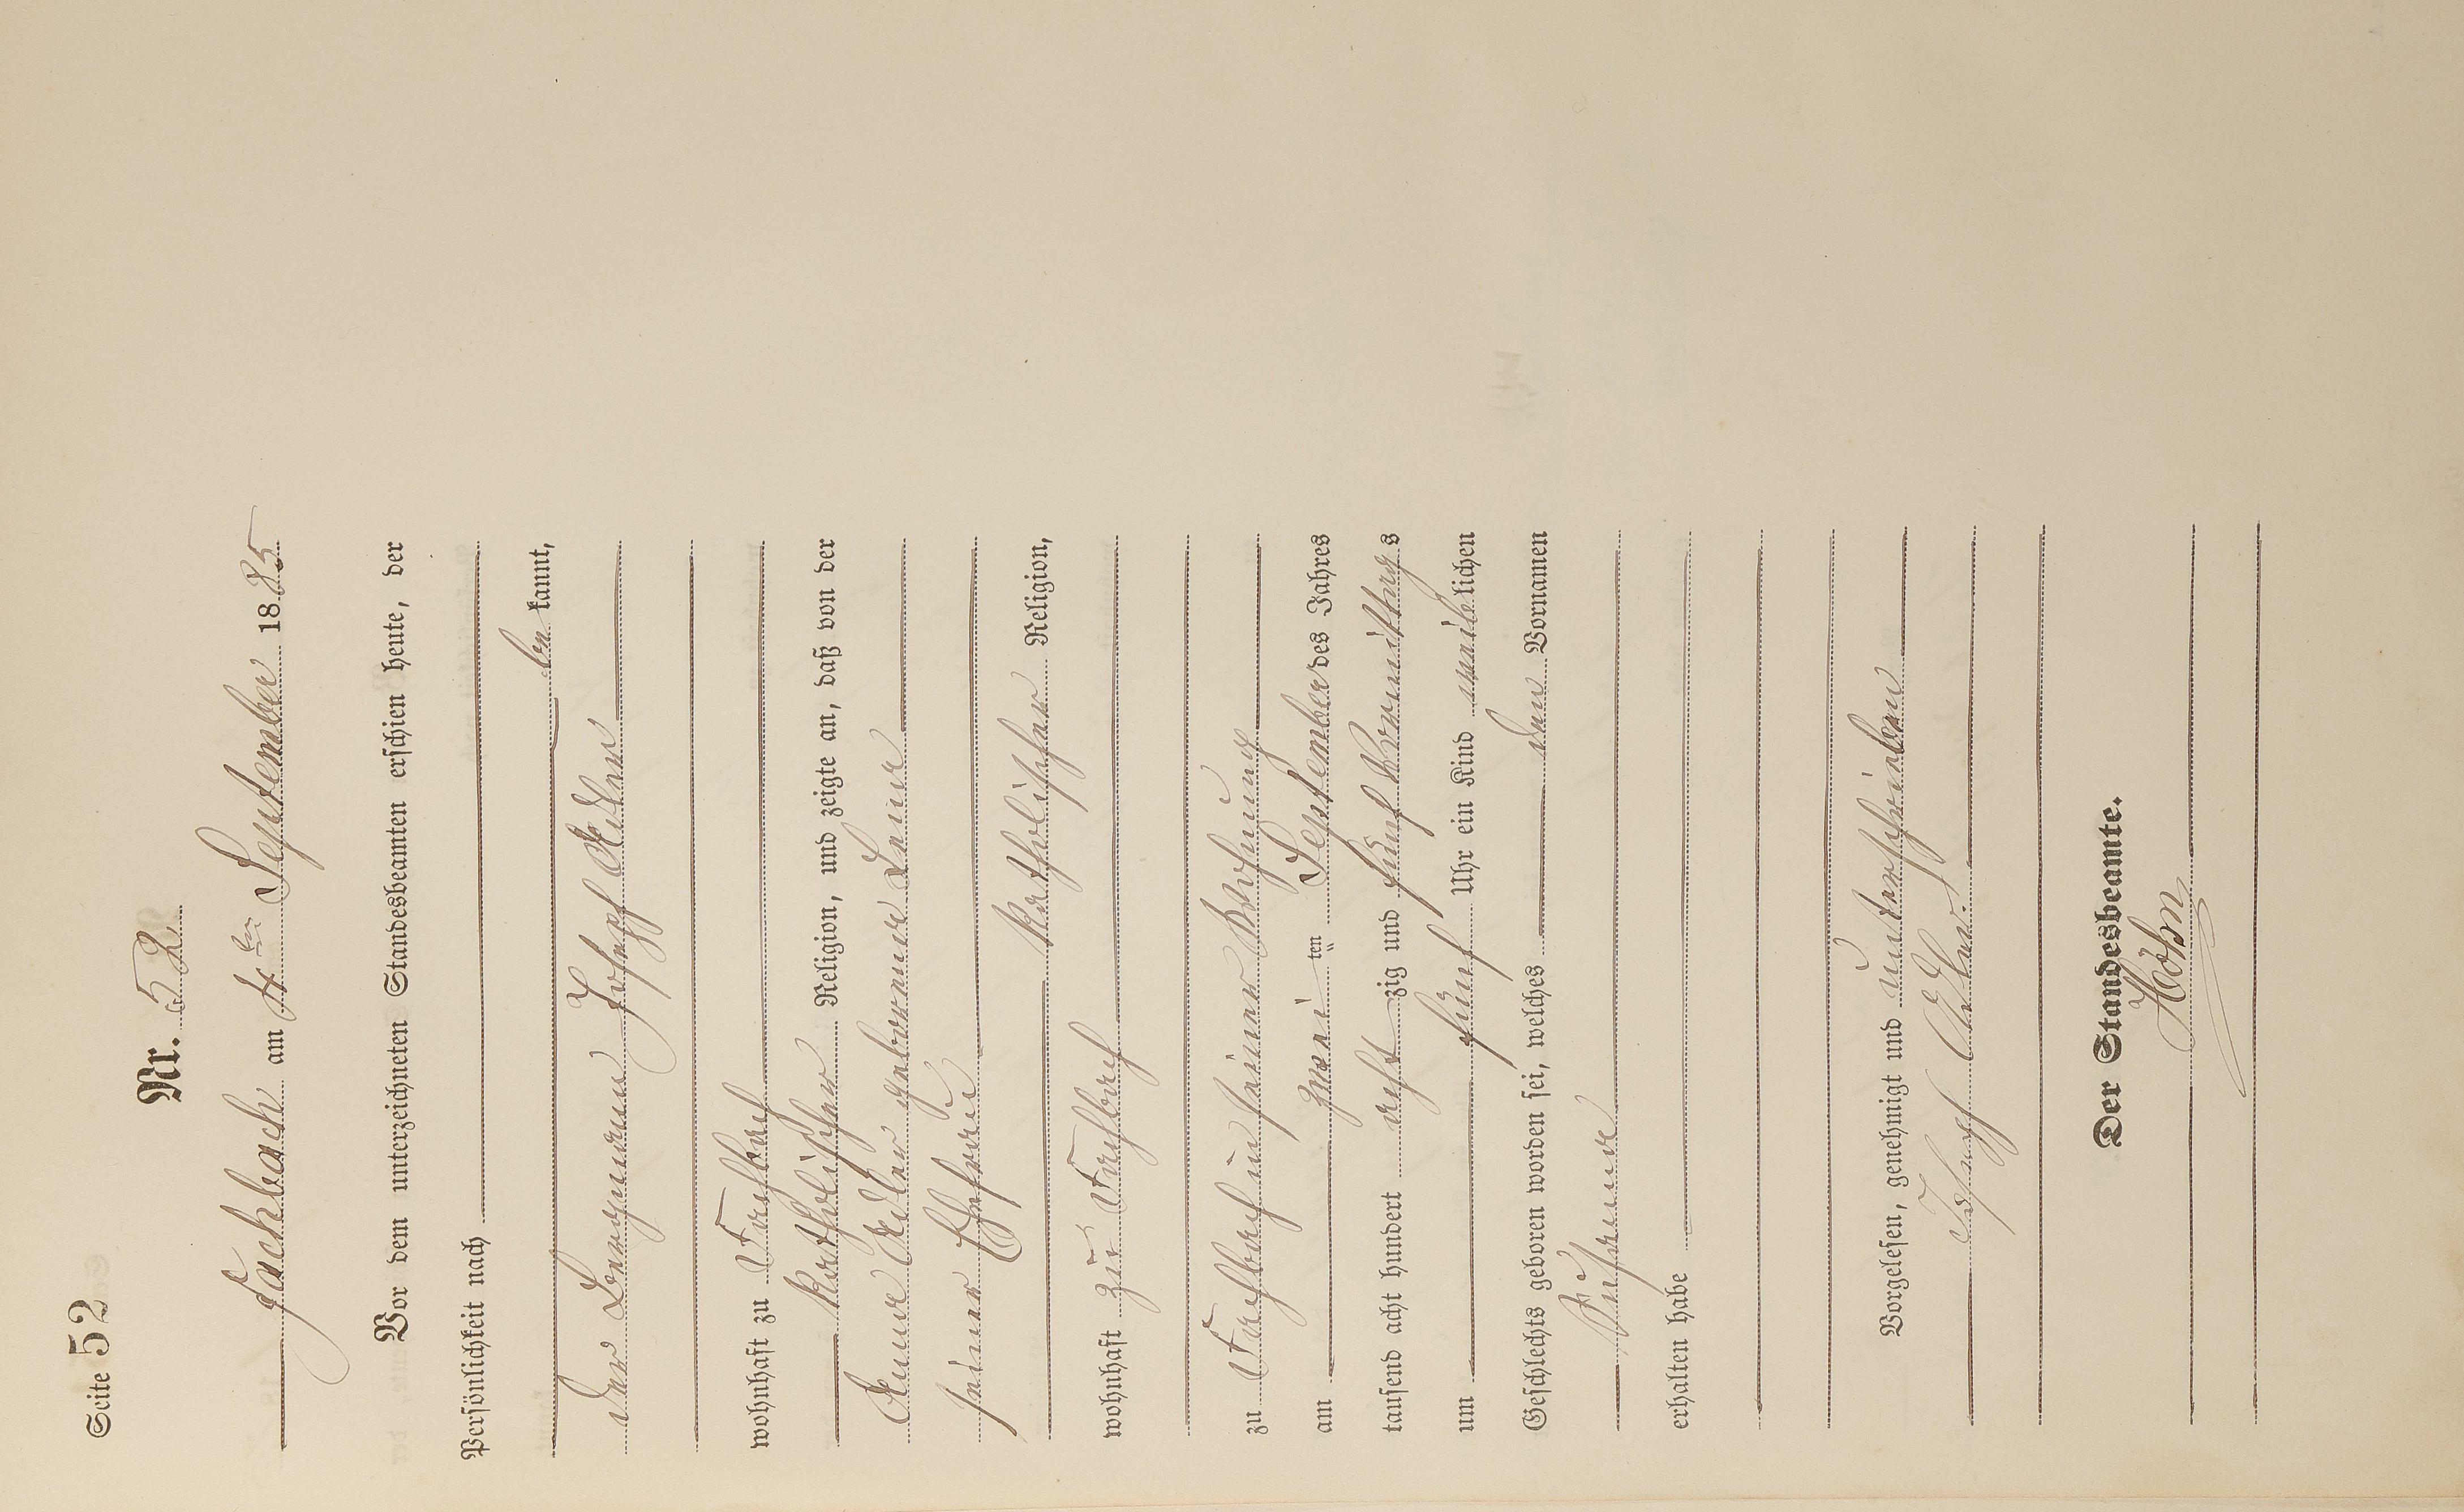 Seite 52
Nr. 52
Fachbach am 4ten September 1885
Vor dem unterzeichneten Standesbeamten erschien heute, der
Persönlichkeit nach
be kannt,
der Bergmann Joseph Adler
wohnhaft zu Fachbach
katholischer Religion, und zeigte an, daß von der
Anna Adler geborenen
seiner Ehefrau
katholischer Religion,
wohnhaft zu Fachbach
zu Fachbach in seiner Wohnung
am zwei ten September des Jahres
tausend acht hundert acht zig und fünf Vormittag s
um fünf Uhr ein Kind weib lichen
Geschlechts geboren worden sei, welches den Vornamen
erhalten habe
Vorgelesen, genehmigt und unterschrieben
Joseph Adler.
Der Standesbeamte.
Höhn